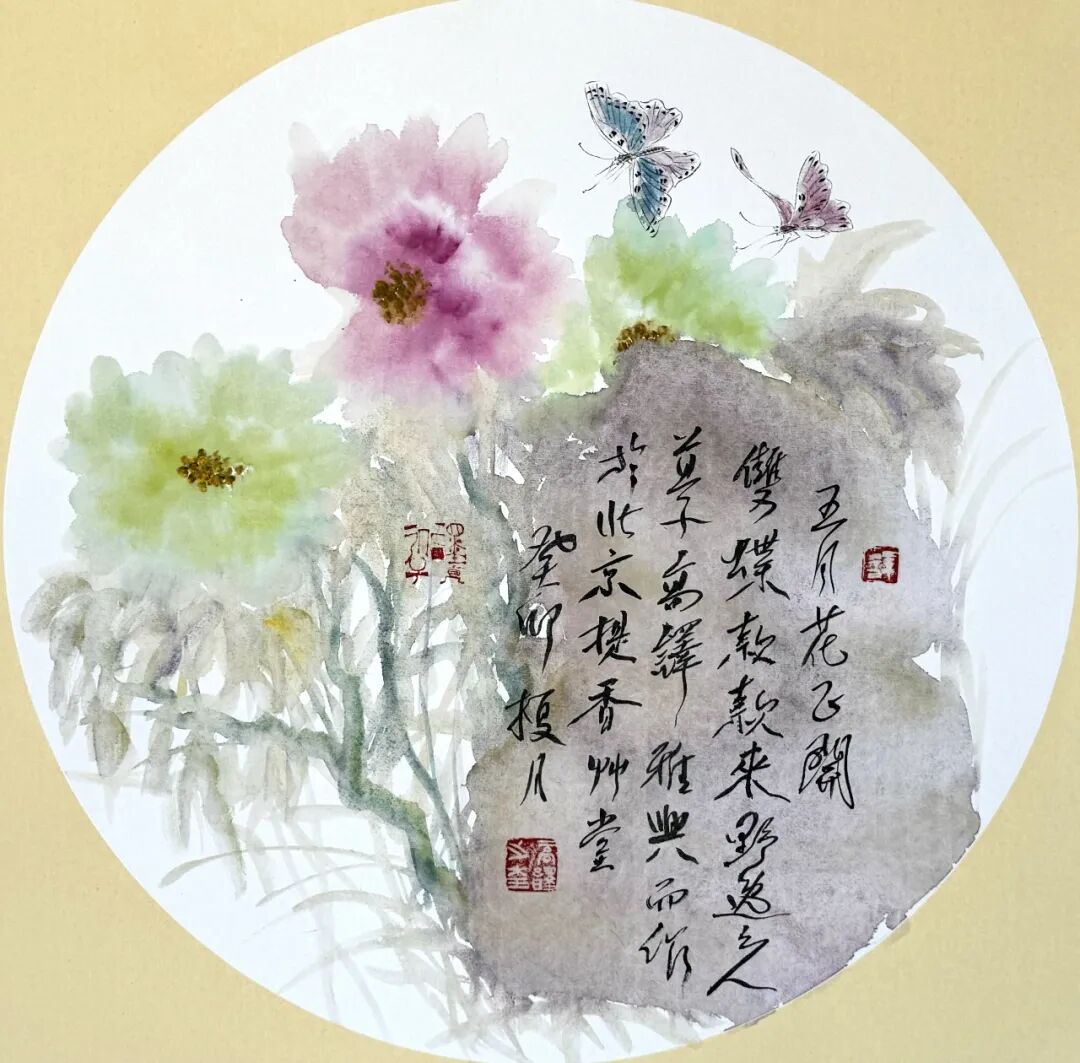 五月花正開
雙蝶款款來野逸之人
高譯雅興而作
於北京提香艸堂
癸卯月